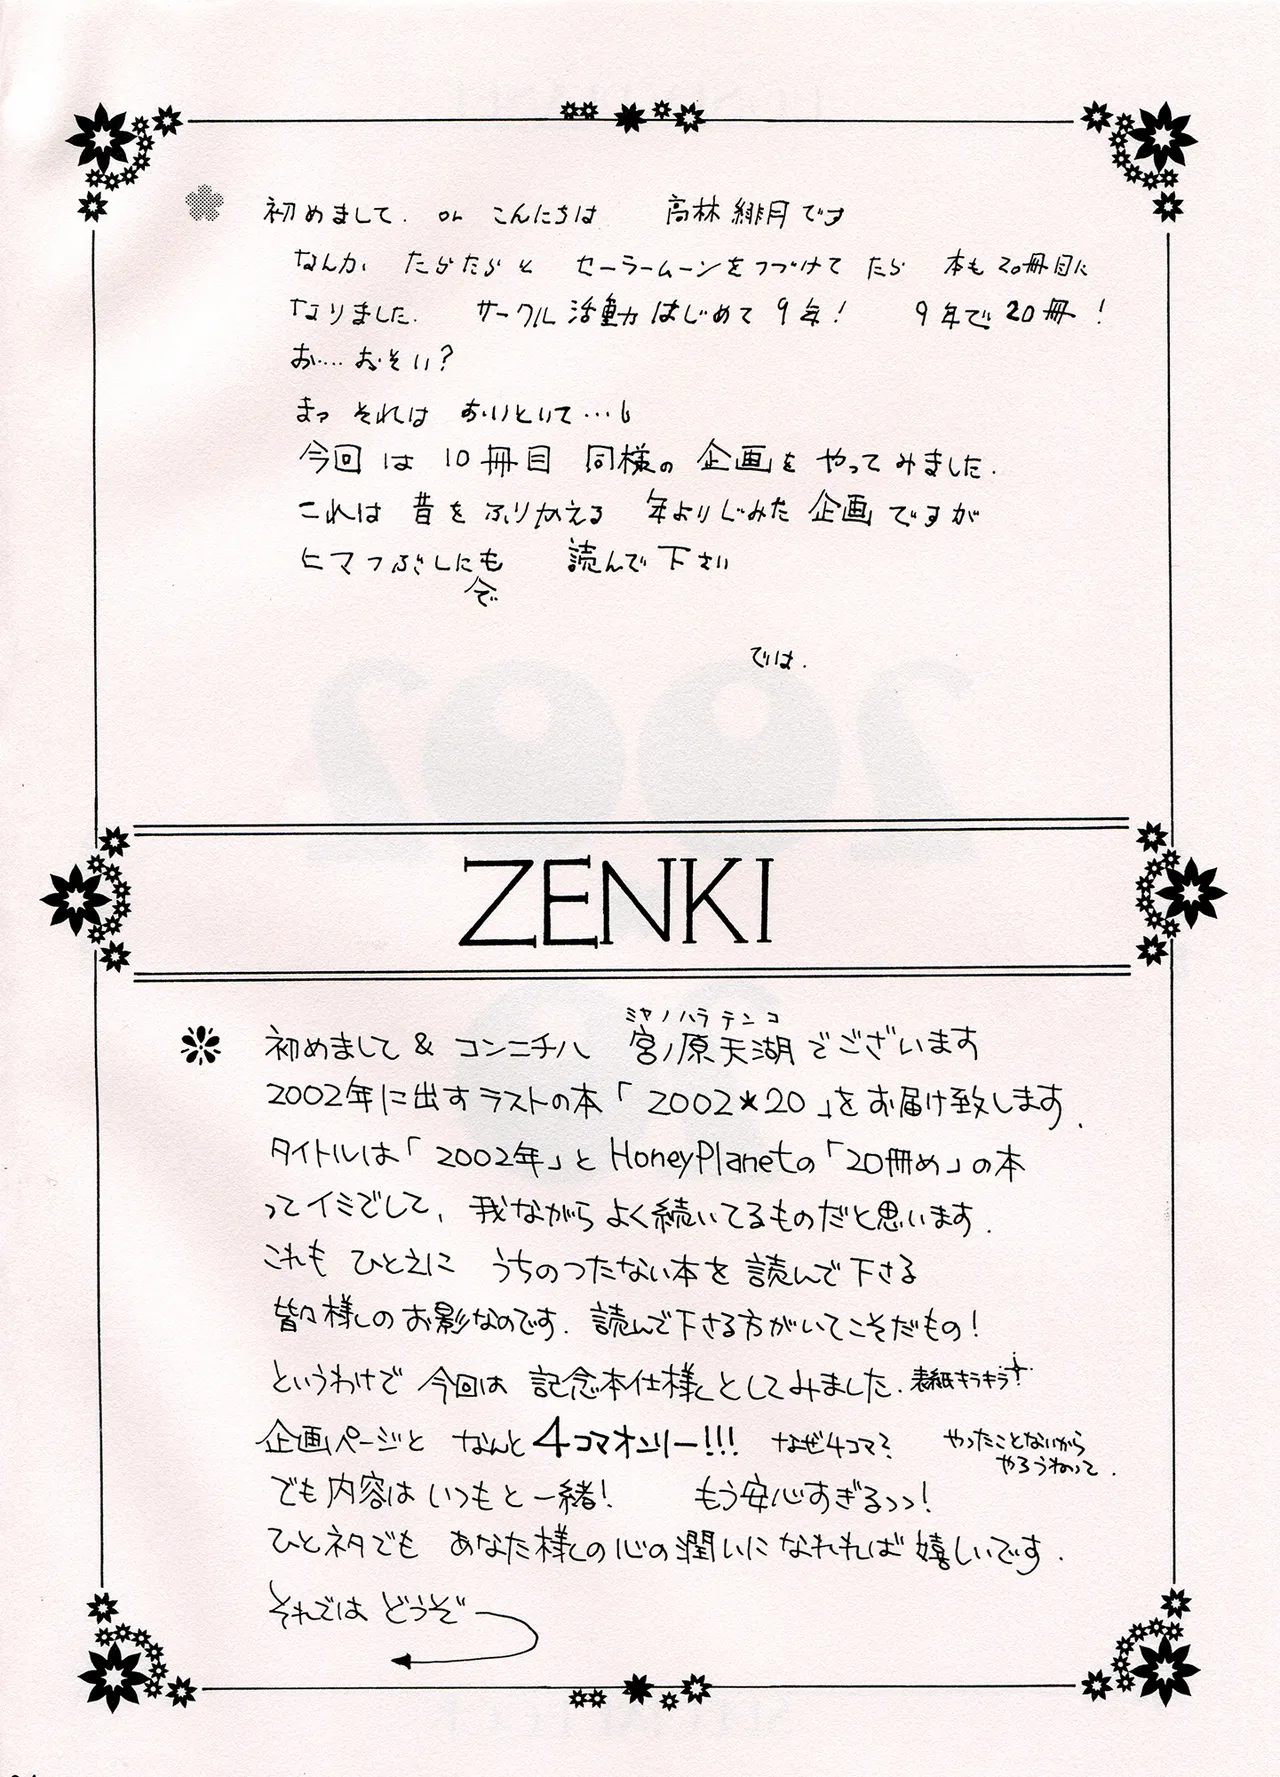 初めまして. or こんにちは 高林緋月です
なんか、たらたらと セーラームーンをつづけて たら 本も20冊目に
なりました. サークル活動はじめて9年! 9年で20冊!
お…. おそい?
まァ それは おいといて…
今回は 10冊目 同様の 企画を やってみました.
これは 昔を ふりかえる 年よりじみた 企画ですが
ヒマつぶしにでも 読んで下さい
では.
ZENKI
ミヤノハラ テンコ
初めまして & コンニチハ 宮ノ原天湖でございます
2002年に出すラストの本「2002★20」をお届け致します.
タイトルは「2002年」と HoneyPlanetの「20冊め」の本
ってイミでして、我ながら よく続いてるものだと思います.
これも ひとえに うちのつたない本を 読んで下さる
皆々様のお影なのです. 読んで下さる方がいてこそだもの!
というわけで 今回は 記念本仕様としてみました. 表紙キラキラ!
企画ページと なんと 4コマオンリー!!! なぜ4コマ? やったことないから
やろうねって.
でも内容は いつもと一緒! もう安心すぎるっっ!
ひとネタでも あなた様の心の潤いに なれれば 嬉しいです.
それでは どうぞ